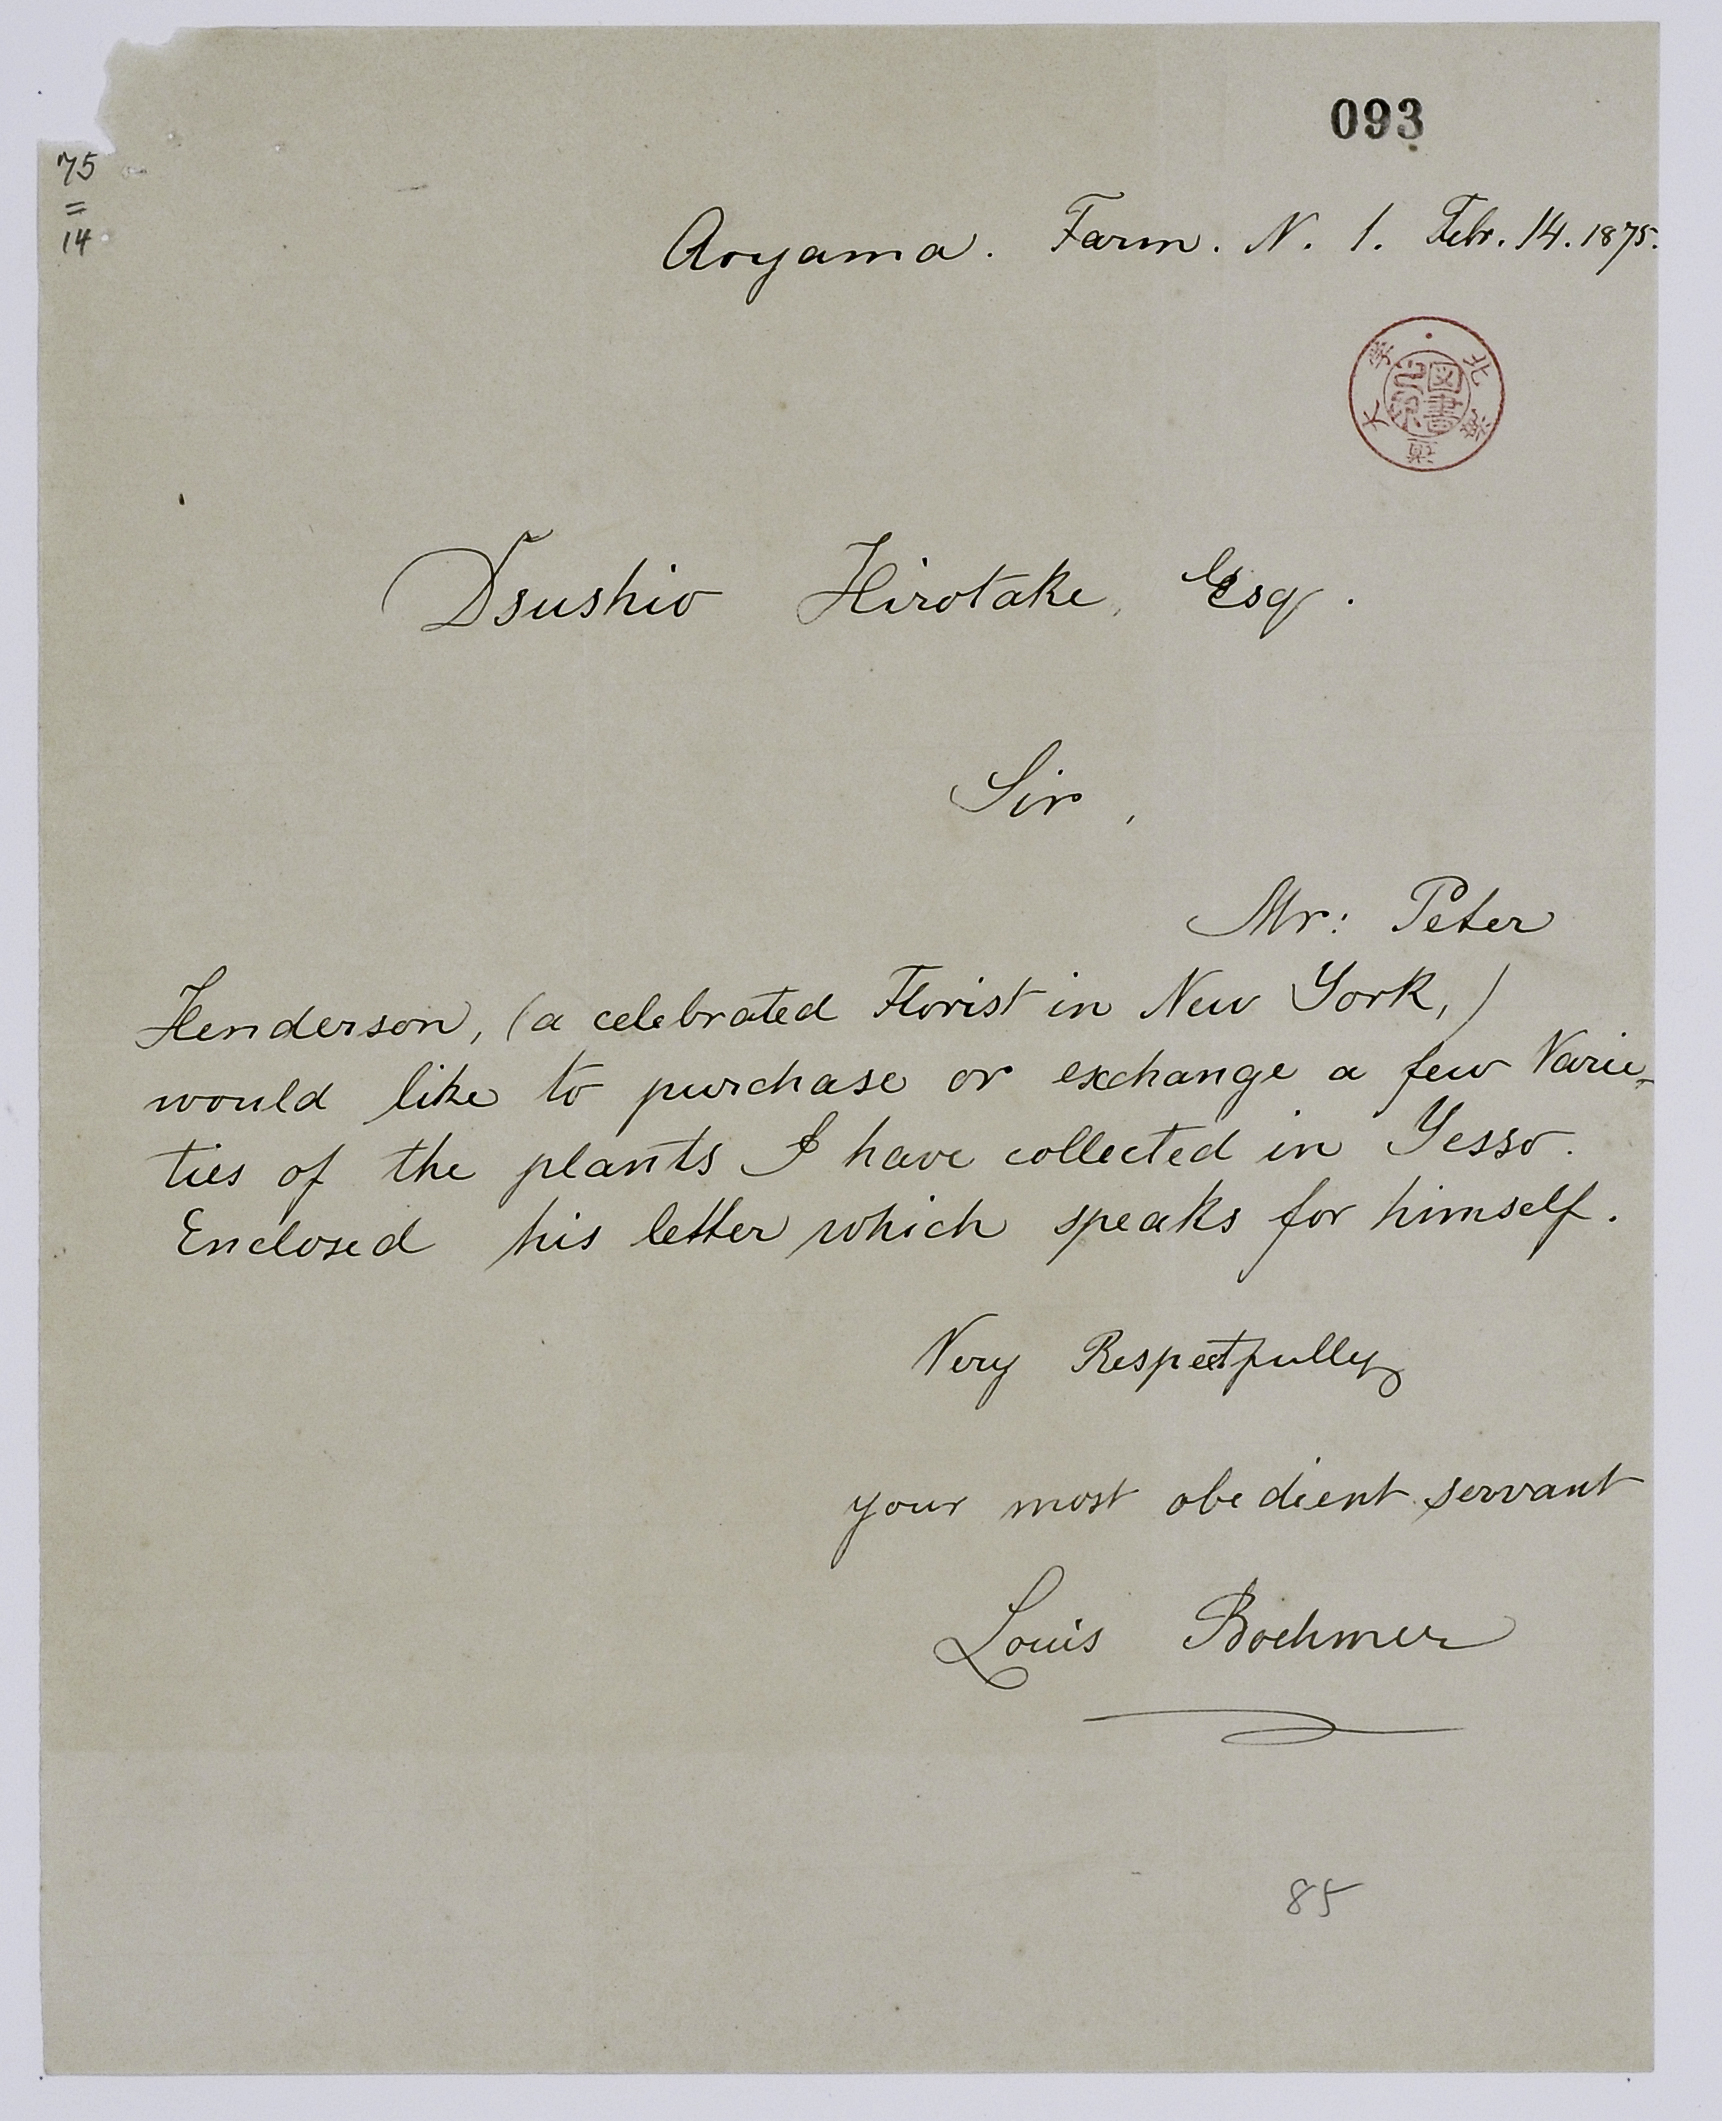 093
75
=
14
Aoyama. Farm. N. 1. Febr. 14. 1875.
北海道大学
図書
Dsushio Hirotake, Esq.
Sir,
Mr: Peter
Henderson, (a celebrated Florist in New York,)
would like to purchase or exchange a few Varie-
ties of the plants I have collected in Yesso.
Enclosed his letter which speaks for himself.
Very Respectfully
your most obedient servant
Louis Boehmer
85